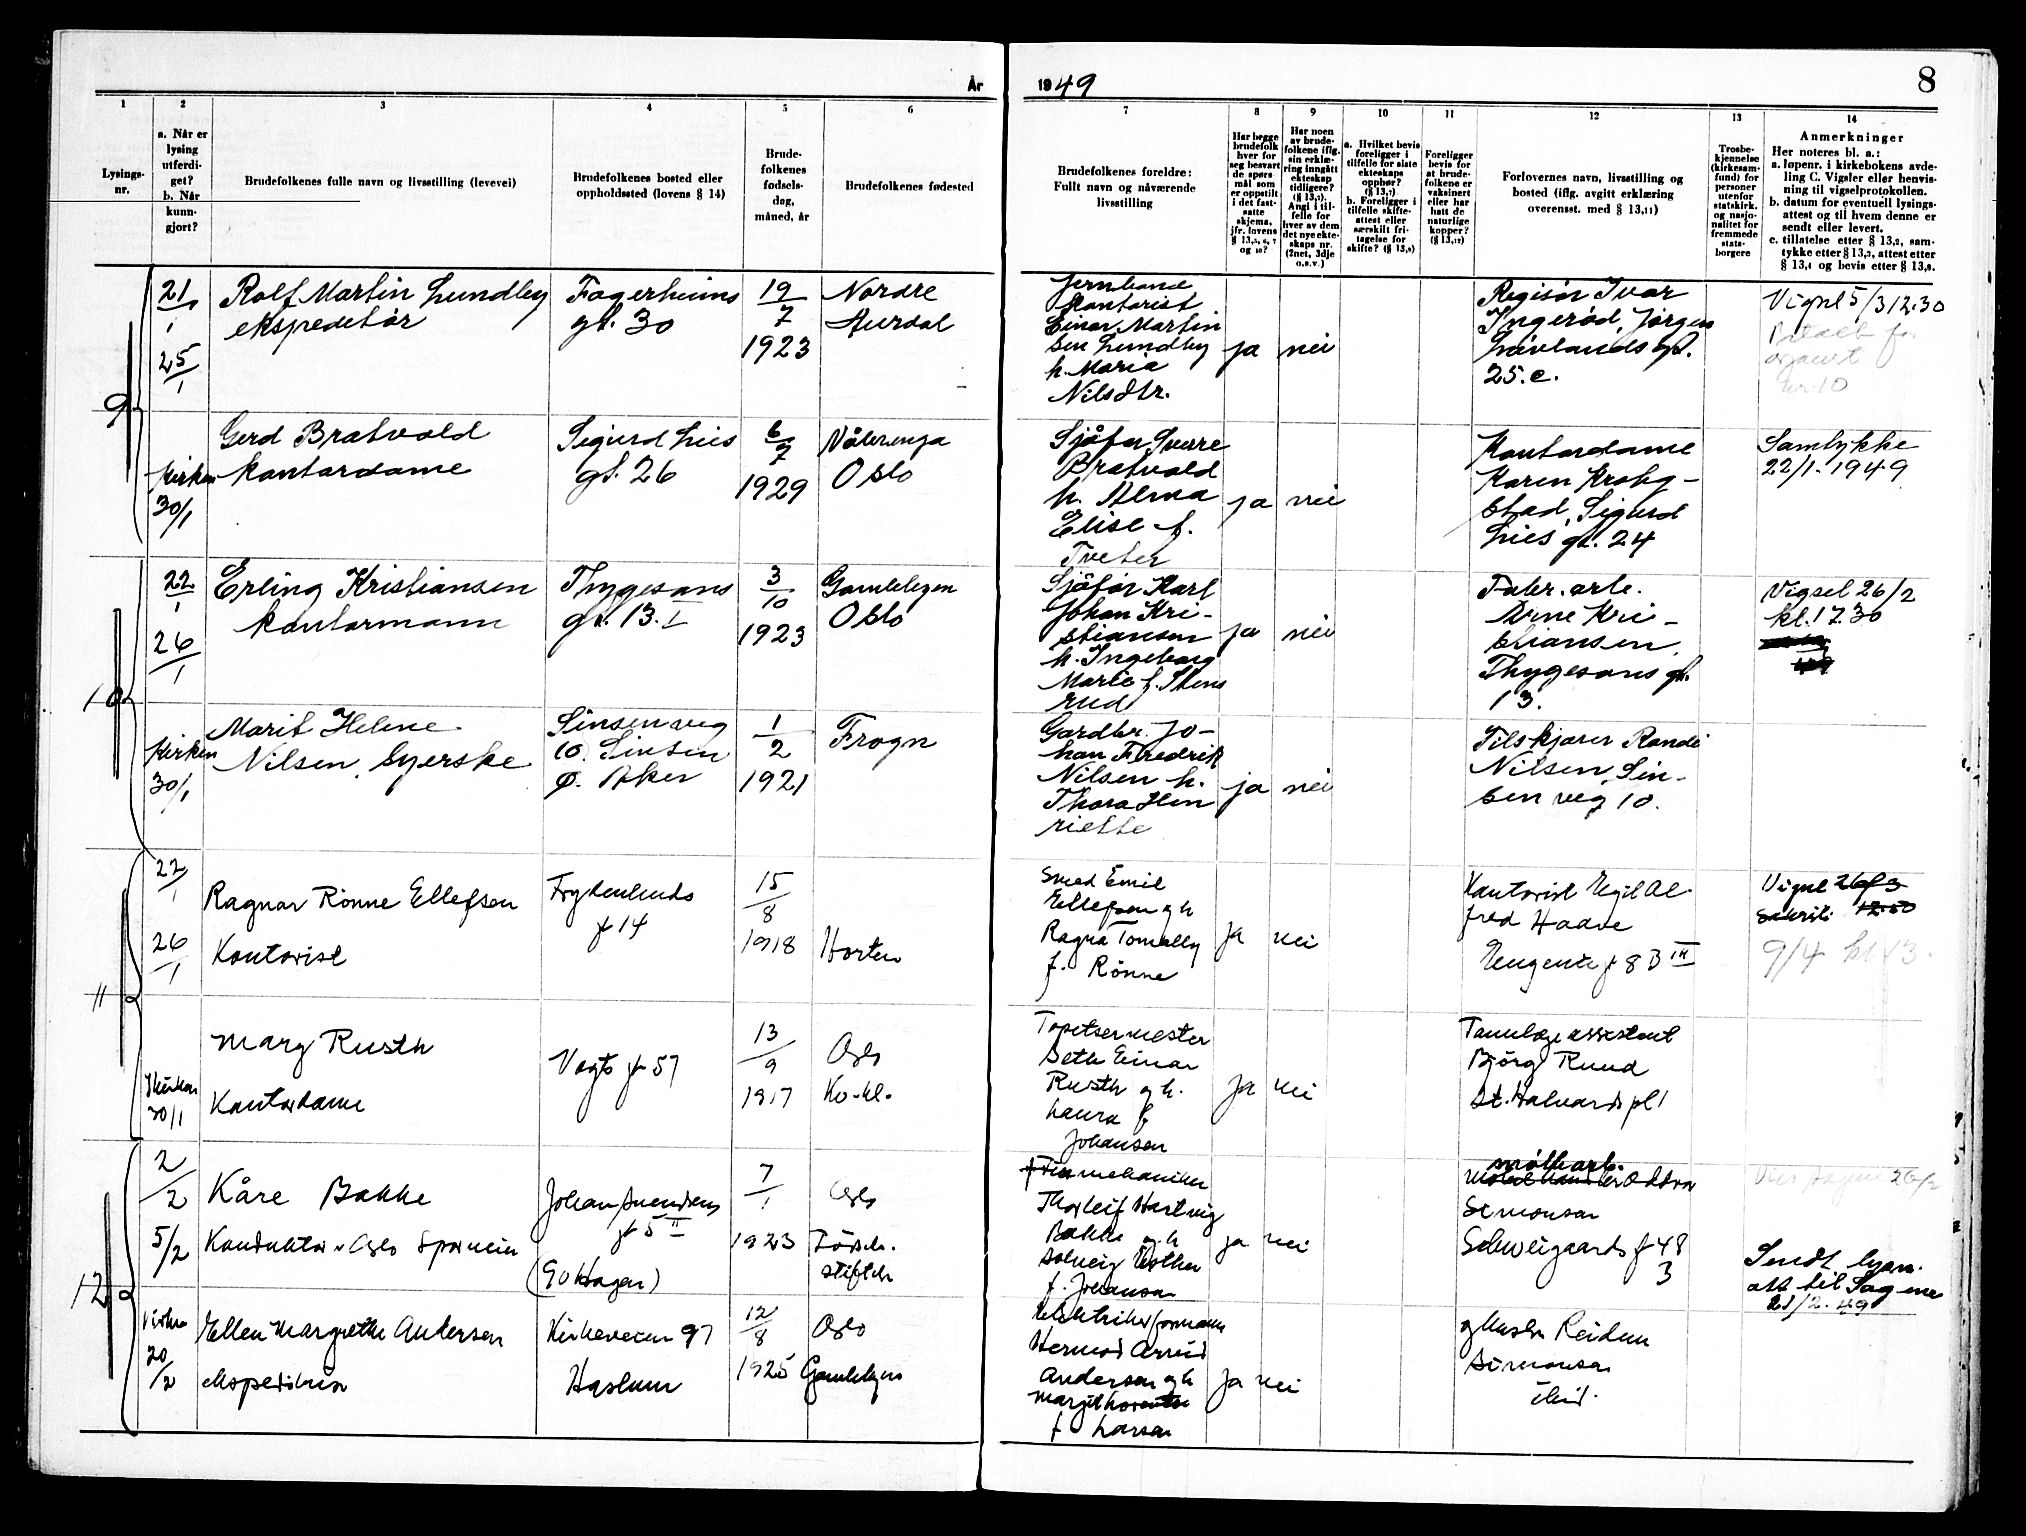 År
1949
8
1
2
3
4
5
6
7
8
9
10
11
12
13
14
Lysings-
nr.
a. Når er
lysing
utferdi-
get?
b. Når
kunn-
gjort?
Brudefolkenes fulle navn og livsstilling (levevei)
Brudefolkenes bosted eller
oppholdssted (lovens § 14)
Brude-
folkenes
fødsels-
dag,
måned, år
Brudefolkenes fødested
Brudefolkenes foreldre:
Fullt navn og nåværende
livsstilling
Har begge
brudefolk
hver for
seg besvart
de spørs-
mål som
er oppstilt
i det fast-
satte
skjema,
jfr. lovens
og 10?
Har noen
av brude-
folkene iflg.
sin erklæ-
ring inngått
ekteskap
tidligere?
Angi i til-
felle for
hver av dem
det nye ekte-
skaps nr.
(2net, 3dje
o.s.v.)
a. Hvilket bevis
foreligger i
tilfelle for siste
ekteskaps
opphør?
b. Foreligger i
tilfelle skifte-
attest eller
særskilt fri-
tagelse for
skifte?
Foreligger
bevis for
at brude-
folkene er
vaksinert
eller har
hatt de
naturlige
kopper?
(§ 13,12)
Forlovernes navn, livsstilling og
bosted (iflg. avgitt erklæring
overensst. med § 13,11)
Trosbe-
kjennelse
(kirkesam-
fund) for
personer
utenfor
statskirk.
og nasjo-
nalitet for
fremmede
stats-
borgere
Anmerkninger
Her noteres bl. a.:
a. løpenr. i kirkebokens avde-
ling C. Vigsler eller henvis-
ning til vigselprotokollen.
b. datum for eventuell lysings-
attest og til hvem denne er
sendt eller levert.
c. tillatelse etter § 13,2, sam-
tykke etter § 13,3, attest etter
§ 13,4 og bevis etter § 13,8.
9
21/1
25/1
Rolf Martin Lundby
ekspeditør
Fagerheims
gt. 30
19/7
1923
Nordre
Aurdal
Jernbane
kontorist
Einar Martin
sen Lundby
h. Maria
Nilsdtr.
ja
nei
Regisør Ivar
Ingerød, Jørgen
Løvlands gt.
25.c.
Vigsel 5/3 12.30
nr. 10
Kirken
30/1
Gerd Bratvold
kontordame
Sigurd Lies
gt. 26
6/7
1929
Vålerenga
Oslo
Sjåfør Sverre
Bratvold
h. Alma
Elise f.
Tveter
ja
nei
Kontordame
Karen Krohg-
stad, Sigurd
Lies gt. 24
Samtykke
22/1. 1949
10
22/1
26/1
Erling Kristiansen
kontormann
Thygesons
gt. 13. I
3/10
1923
Gamlebyen
Oslo
Sjåfør Karl
Johan Kri-
stiansen
h. Ingeborg
Marie f. Stens
rud
ja
nei
Fabr. arb.
Arne Kri-
stiansen,
Thygesons gt.
13.
Vigsel 26/2
kl. 17.30
Kirken
30/1
Marit Helene
Nilsen, Syerske
Sinsenveg
10. Sinsen
Ø. Aker
1/2
1921
Frogn
Gardbr. Jo-
han Fredrik
Nilsen h.
Thora Hen
riette
ja
nei
Tilskjærer Randi
Nilsen, Sin-
sen veg 10.
11
22/1
26/1
Ragnar Rönne Ellefsen
Kontorist
Frydenlunds
gt 14
15/8
1918
Horten
Smed Emil
Ellefsen og h
Ragna Tomally
f. Rönne
ja
nei
Kontorist Egil Al-
fred Haave
Eugenies gt 8 B III
Vigsel 26/3
12.30
9/4 kl 13.
Kirken
30/1
Marg Rusth
Kontordame
Vogts gt 57
13/9
1917
Oslo
Kv.kl.
Tapetsermester
Seth Einar
Rusth og h.
Laura f
Johansen
Ja
nei
Tannlægeassistent
Björg Ruud
St. Halvards pl 1
12
2/2
5/2
Kåre Bakke
Konduktør v Oslo Sporveier
Johan Svendsens
gt 5 II
7/1
1923
Oslo
Födsels.
stiftels
Finmekaniker
Thorleif Hartvig
Bakke og h
Solveig Esther
f. Johansen
ja
nei
målharb.
Oddvar
Simonsen
Schweigaards gt 48
3
26/2
Sendt lysn.
att til Sagene
21/2. 49
Kirken
20/2
Ellen Margrethe Andersen
ekspeditrise
Kirkeveien 97
Haslum
12/8
1925
Oslo
Gamlebyen
Elektriker formann
Hermod Arvid
Andersen og h
Margit Loventse
f Larsen
Ja
nei
og husm Reidun
Simonsen
ibid.